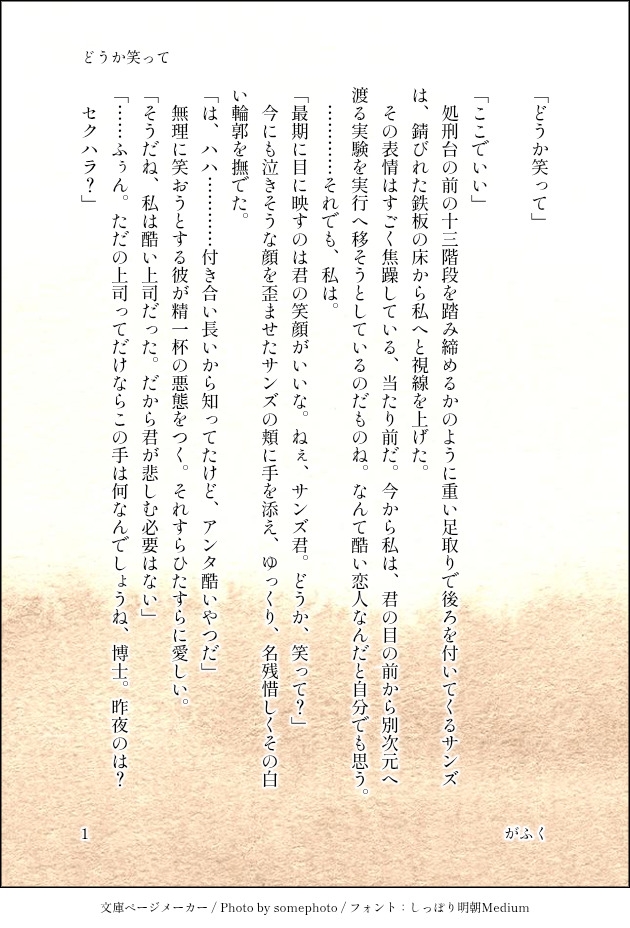 どうか笑って
「どうか笑って」
「ここでいい」
　処刑台の前の十三階段を踏み締めるかのように重い足取りで後ろを付いてくるサンズ
は、錆びれた鉄板の床から私へと視線を上げた。
　その表情はすごく焦躁している、当たり前だ。今から私は、君の目の前から別次元へ
渡る実験を実行へ移そうとしているのだものね。なんて酷い恋人なんだと自分でも思う。
　…………それでも、私は。
「最期に目に映すのは君の笑顔がいいな。ねぇ、サンズ君。どうか、笑って？」
　今にも泣きそうな顔を歪ませたサンズの頬に手を添え、ゆっくり、名残惜しくその白
い輪郭を撫でた。
「は、ハハ…………付き合い長いから知ってたけど、アンタ酷いやつだ」
　無理に笑おうとする彼が精一杯の悪態をつく。それすらひたすらに愛しい。
「そうだね、私は酷い上司だった。だから君が悲しむ必要はない」
「……ふぅん。ただの上司ってだけならこの手は何なんでしょうね、博士。昨夜のは？
　セクハラ？」
がふく
1
文庫ページメーカー / Photo by somephoto / フォント：しっぽり明朝Medium